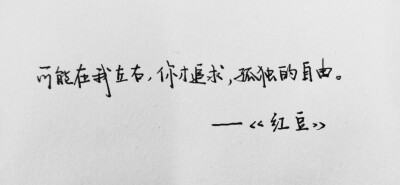 可能在我左右，你才追求，孤独的自由。
——《红豆》